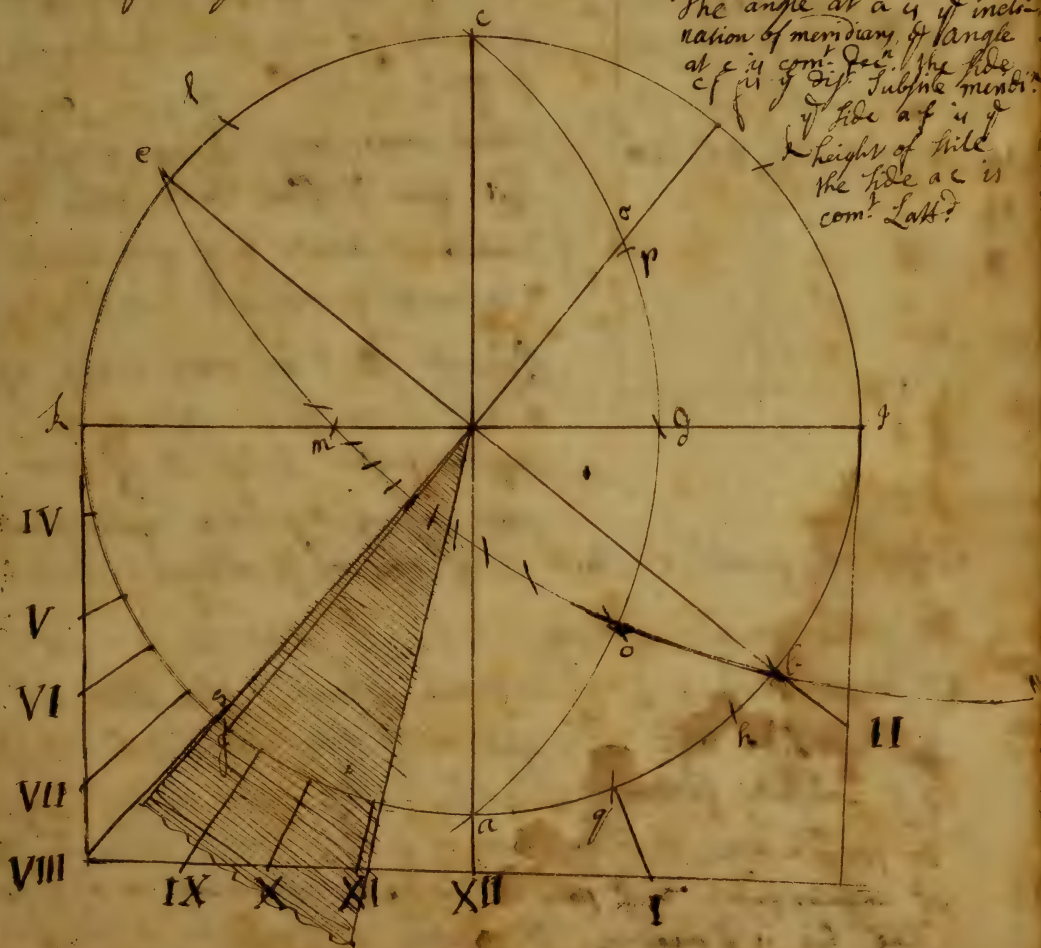 c
The angle at a is yͤ incli-
nation of meridians, yͤ angle
at c is comᵗ. Decⁿ. the side
cf is yͤ dis: Substile meridi:
yͤ side af is yͤ
height of stile
the side ac is
comᵗ. Lattᵈ
l
e
p
k
m
o
h
IV
V
VI
VII
VIII
IX
X
XI
XII
I
II
a
q